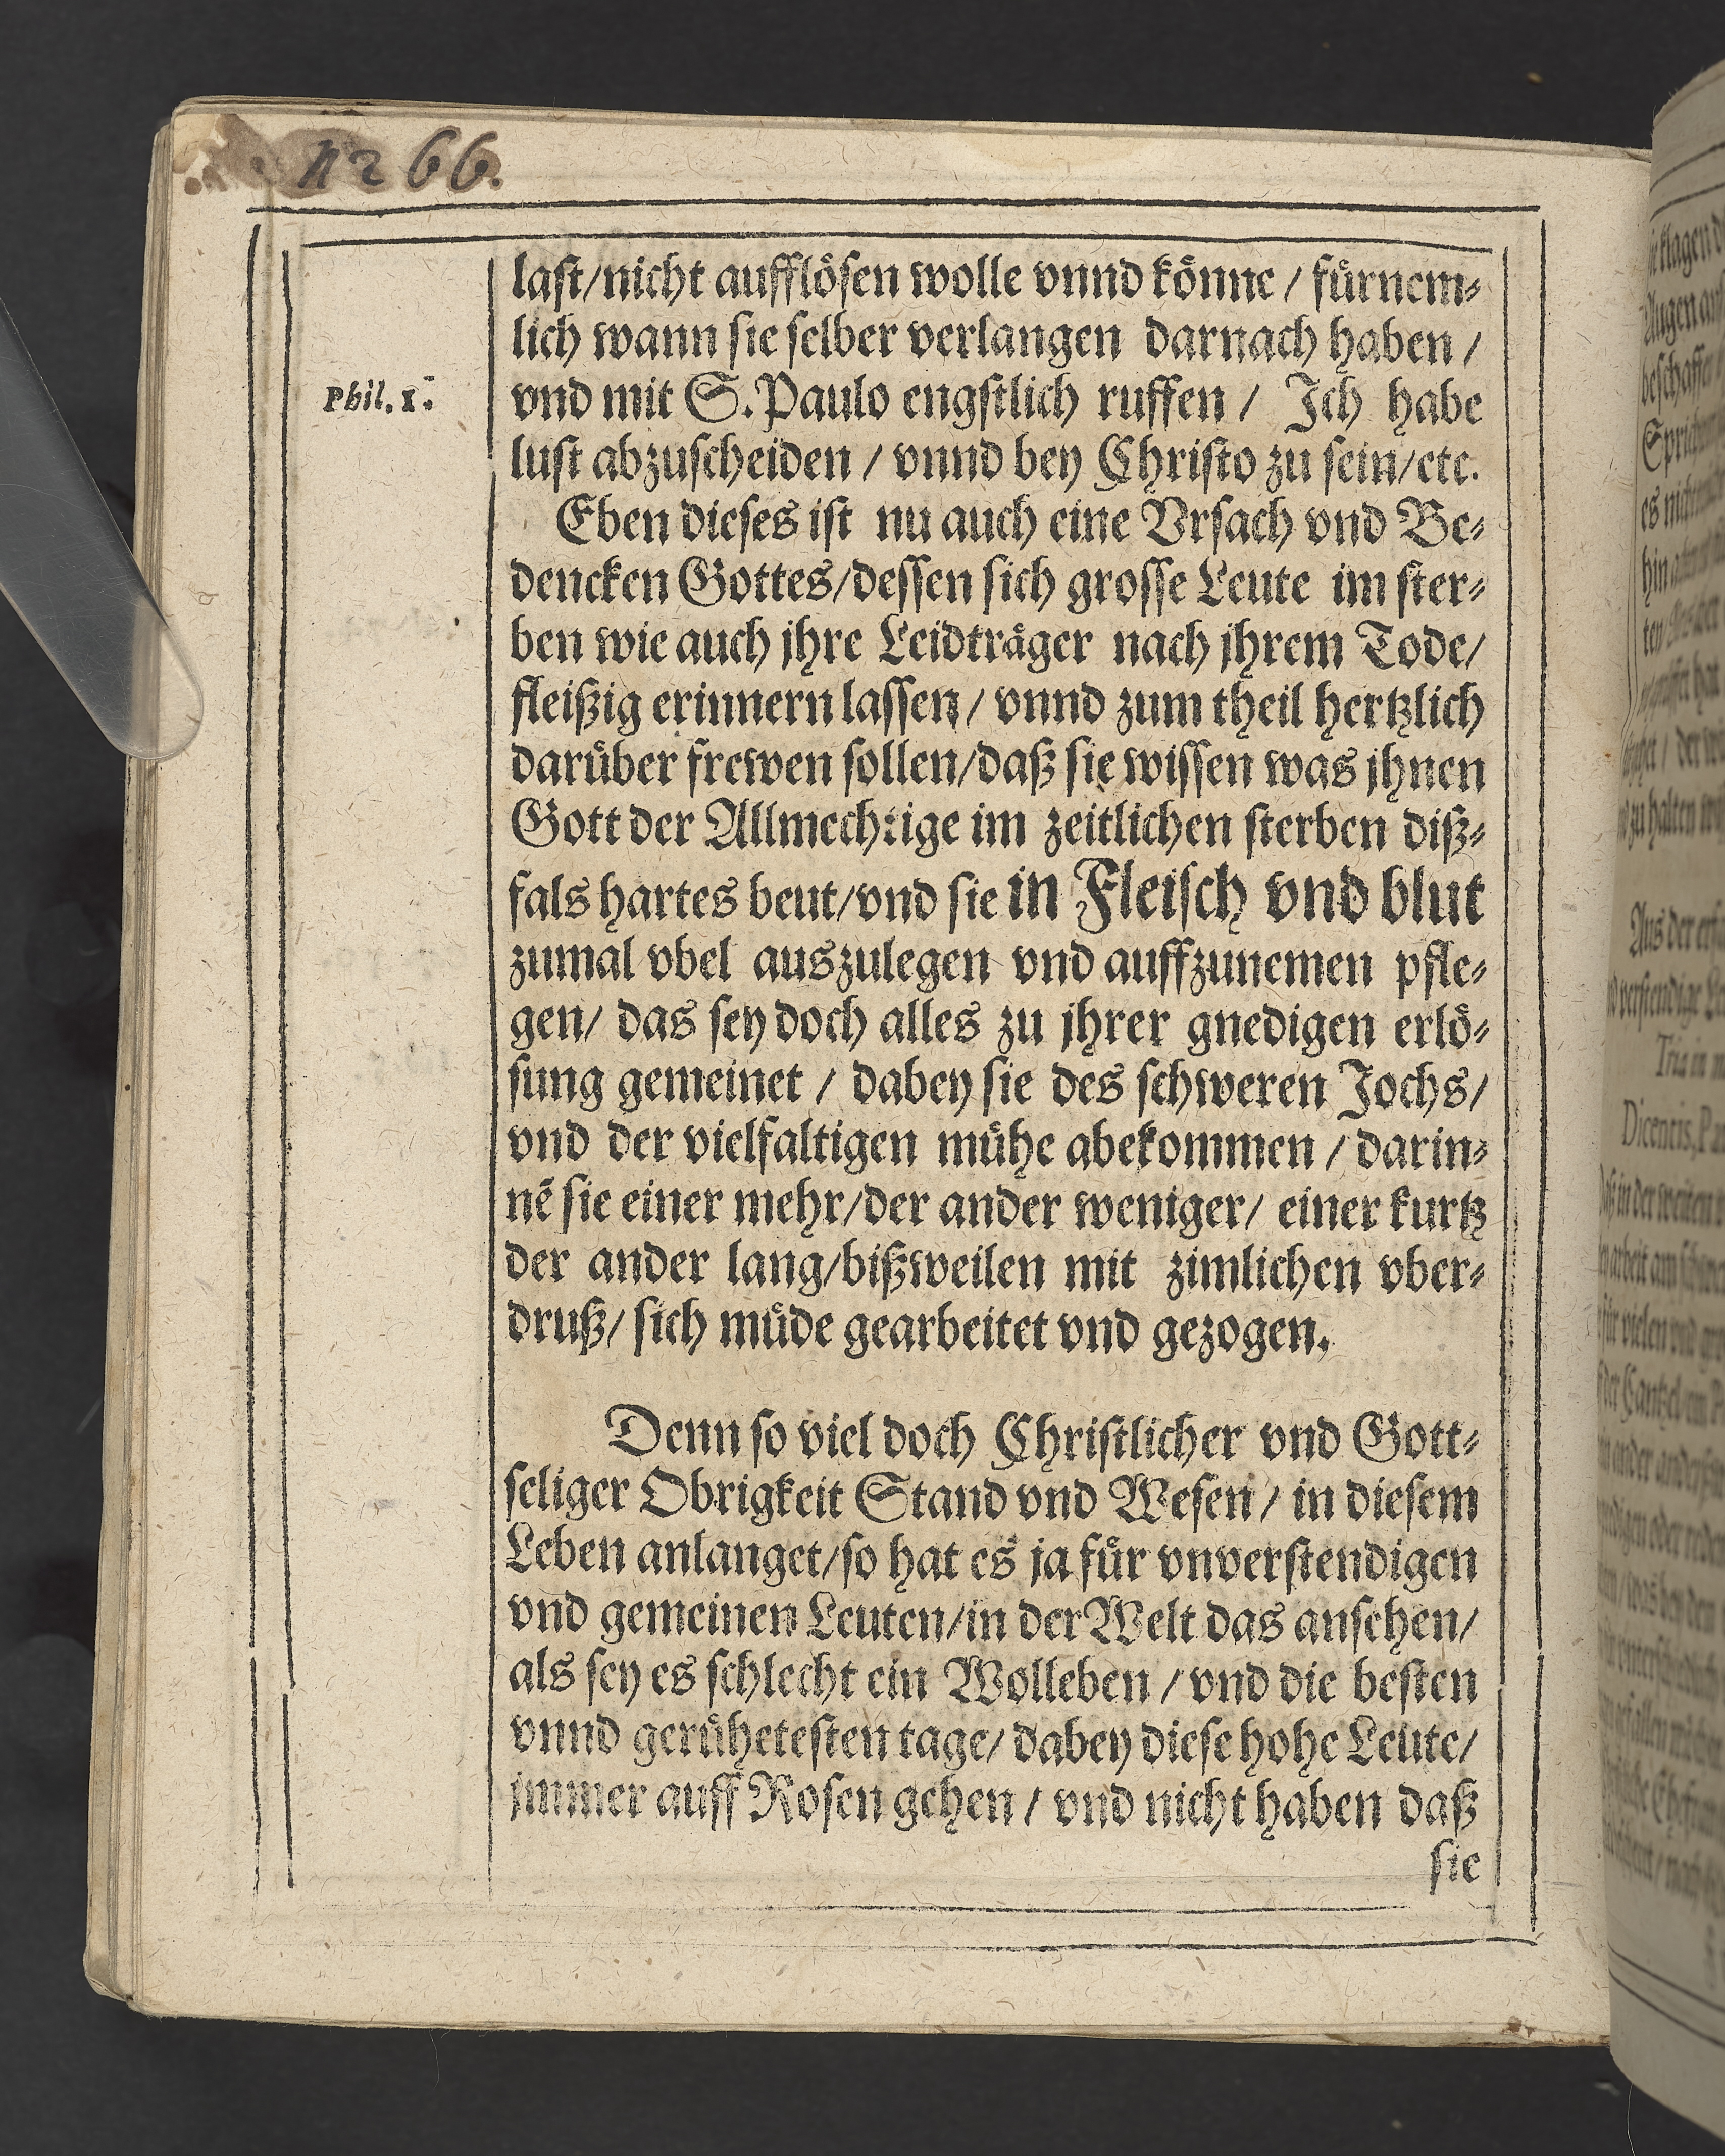 1266.
last/nicht aufflösen wolle vnnd könne / fürnem⸗
lich wann sie selber verlangen darnach haben /
Phil. 1.
vnd mit S. Paulo engstlich ruffen / Ich habe
lust abzuscheiden / vnnd bey Christo zu sein/etc.
Eben dieses ist nu auch eine Vrsach vnd Be⸗
dencken Gottes/dessen sich grosse Leute im ster⸗
ben wie auch jhre Leidträger nach jhrem Tode/
fleißig erinnern lassen / vnnd zum theil hertzlich
darüber frewen sollen/daß sie wissen was jhnen
Gott der Allmechtige im zeitlichen sterben diß⸗
fals hartes beut/vnd sie in Fleisch vnd blut
zumal vbel auszulegen vnd auffzunemen pfle⸗
gen/ das sey doch alles zu jhrer gnedigen erlö⸗
sung gemeinet / dabey sie des schweren Jochs/
vnd der vielfaltigen mühe abekommen / darin⸗
nē sie einer mehr/der ander weniger/ einer kurtz
der ander lang/bißweilen mit zimlichen vber⸗
druß/ sich müde gearbeitet vnd gezogen.
Denn so viel doch Christlicher vnd Gott⸗
seliger Obrigkeit Stand vnd Wesen / in diesem
Leben anlanget/so hat es ja für vnverstendigen
vnd gemeinen Leuten/in der Welt das ansehen/
als sey es schlecht ein Wolleben / vnd die besten
vnnd gerühetesten tage/ dabey diese hohe Leute/
jmmer auff Rosen gehen / vnd nicht haben daß
sie